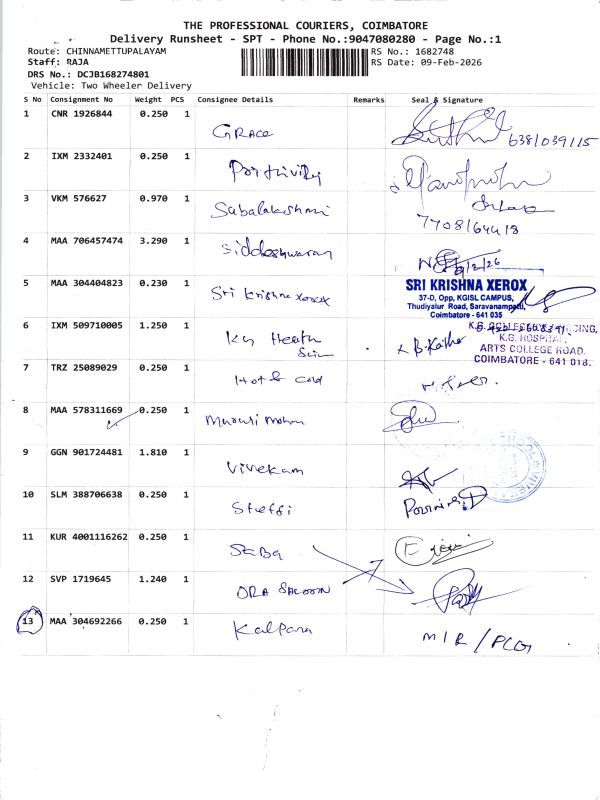 THE PROFESSIONAL COURIERS, COIMBATORE
Delivery Runsheet - SPT - Phone No.:9047080280 - Page No.:1
Route: CHINNAMETTUPALAYAM
RS No.: 1682748
Staff: RAJA
RS Date: 09-Feb-2026
DRS No.: DCJB168274801
Vehicle: Two Wheeler Delivery
S No Consignment No Weight PCS Consignee Details Remarks Seal & Signature
1 CNR 1926844 0.250 1 GRACE 6381039115
2 IXM 2332401 0.250 1
3 VKM 576627 0.970 1 Subalakshmi
4 MAA 706457474 3.290 1 Siddeshwaran
5 MAA 304404823 0.230 1 Sri Krishna xerox
SRI KRISHNA XEROX
37-D, Opp, KGISL CAMPUS,
Thudiyalur Road, Saravanampatti,
Coimbatore - 641 035
6 IXM 509710005 1.250 1 KG Health
K.G. HOSPITAL
ARTS COLLEGE ROAD.
COIMBATORE - 641 018.
7 TRZ 25089029 0.250 1 Hot & Cold
8 MAA 578311669 0.250 1 Murali Mohan
9 GGN 901724481 1.810 1 Vivekam
10 SLM 388706638 0.250 1 Steffi
11 KUR 4001116262 0.250 1 Saba
12 SVP 1719645 1.240 1 ORA SALOON
13 MAA 304692266 0.250 1 Kalpana M/R/PCG